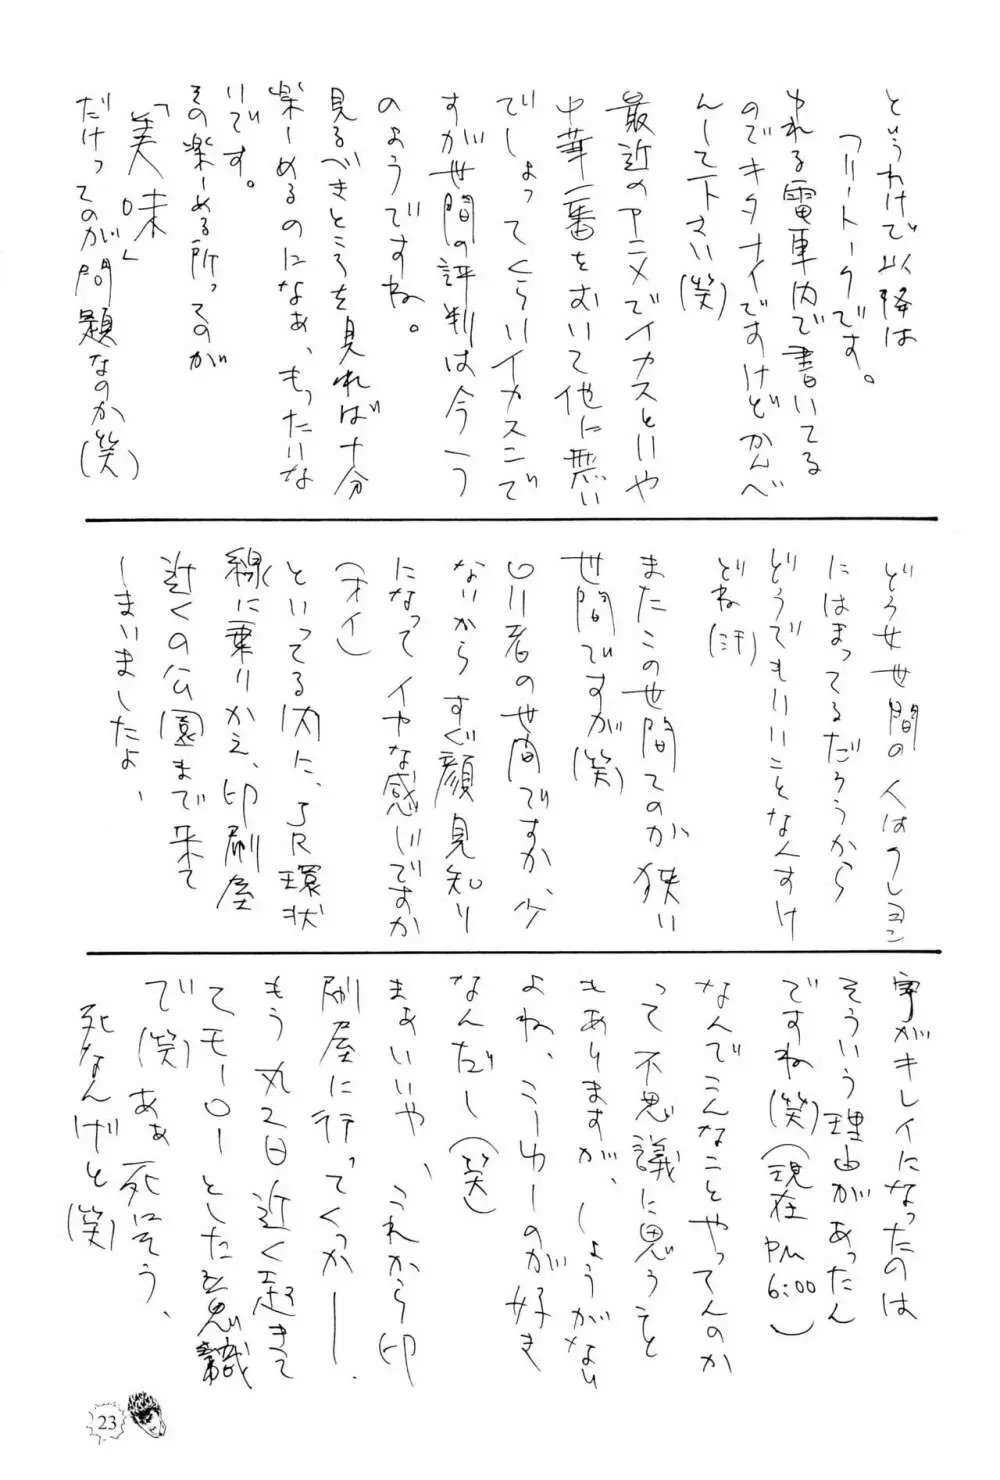 というわけで以降は
フリートークです。
ゆれる電車内で書いてる
のでキタナイですけどかんべ
んして下さい(笑)
最近のアニメでイカスといや
中華一番をおいて他に悪い
でしょってくらいイカスンで
すが世間の評判は今一つ
のようですね。
見るべきところを見れば十分
楽しめるのになぁ、もったいな
いです。
その楽しめる所ってのが
「美味」
だけってのが問題なのか(笑)
どうせ世間の人はクレヨン
にはまってるだろうから
どうでもいいことなんすけ
どね(汗)
またこの世間てのが狭い
世間ですが(笑)
ロリ者の世間ですか、少
ないからすぐ顔見知り
になってイヤな感じですか
(オイ)
といってる内に、JR環状
線に乗りかえ、印刷屋
近くの公園まで来て
しまいましたよ、
字がキレイになったのは
そういう理由があったん
ですね(笑)(現在PM
6:00)
なんでこんなことやってんのか
って不思議に思うこと
もありますが、しょうがない
よね、こーゆーのが好き
なんだし(笑)
まぁいいや、これから印
刷屋に行ってくっかー。
もう丸2日近く起きて
てモーローとした意識
で(笑)あぁ死にそう、
死なんけど(笑)
23